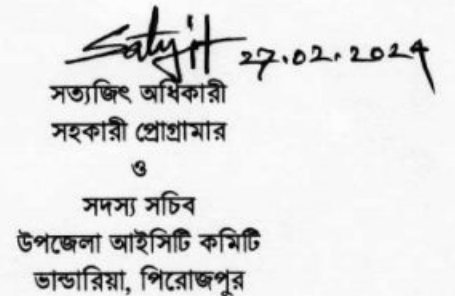 Satyjit 27.02.2024
সত্যজিৎ অধিকারী
সহকারী প্রোগ্রামার
ও
সদস্য সচিব
উপজেলা আইসিটি কমিটি
ভান্ডারিয়া, পিরোজপুর